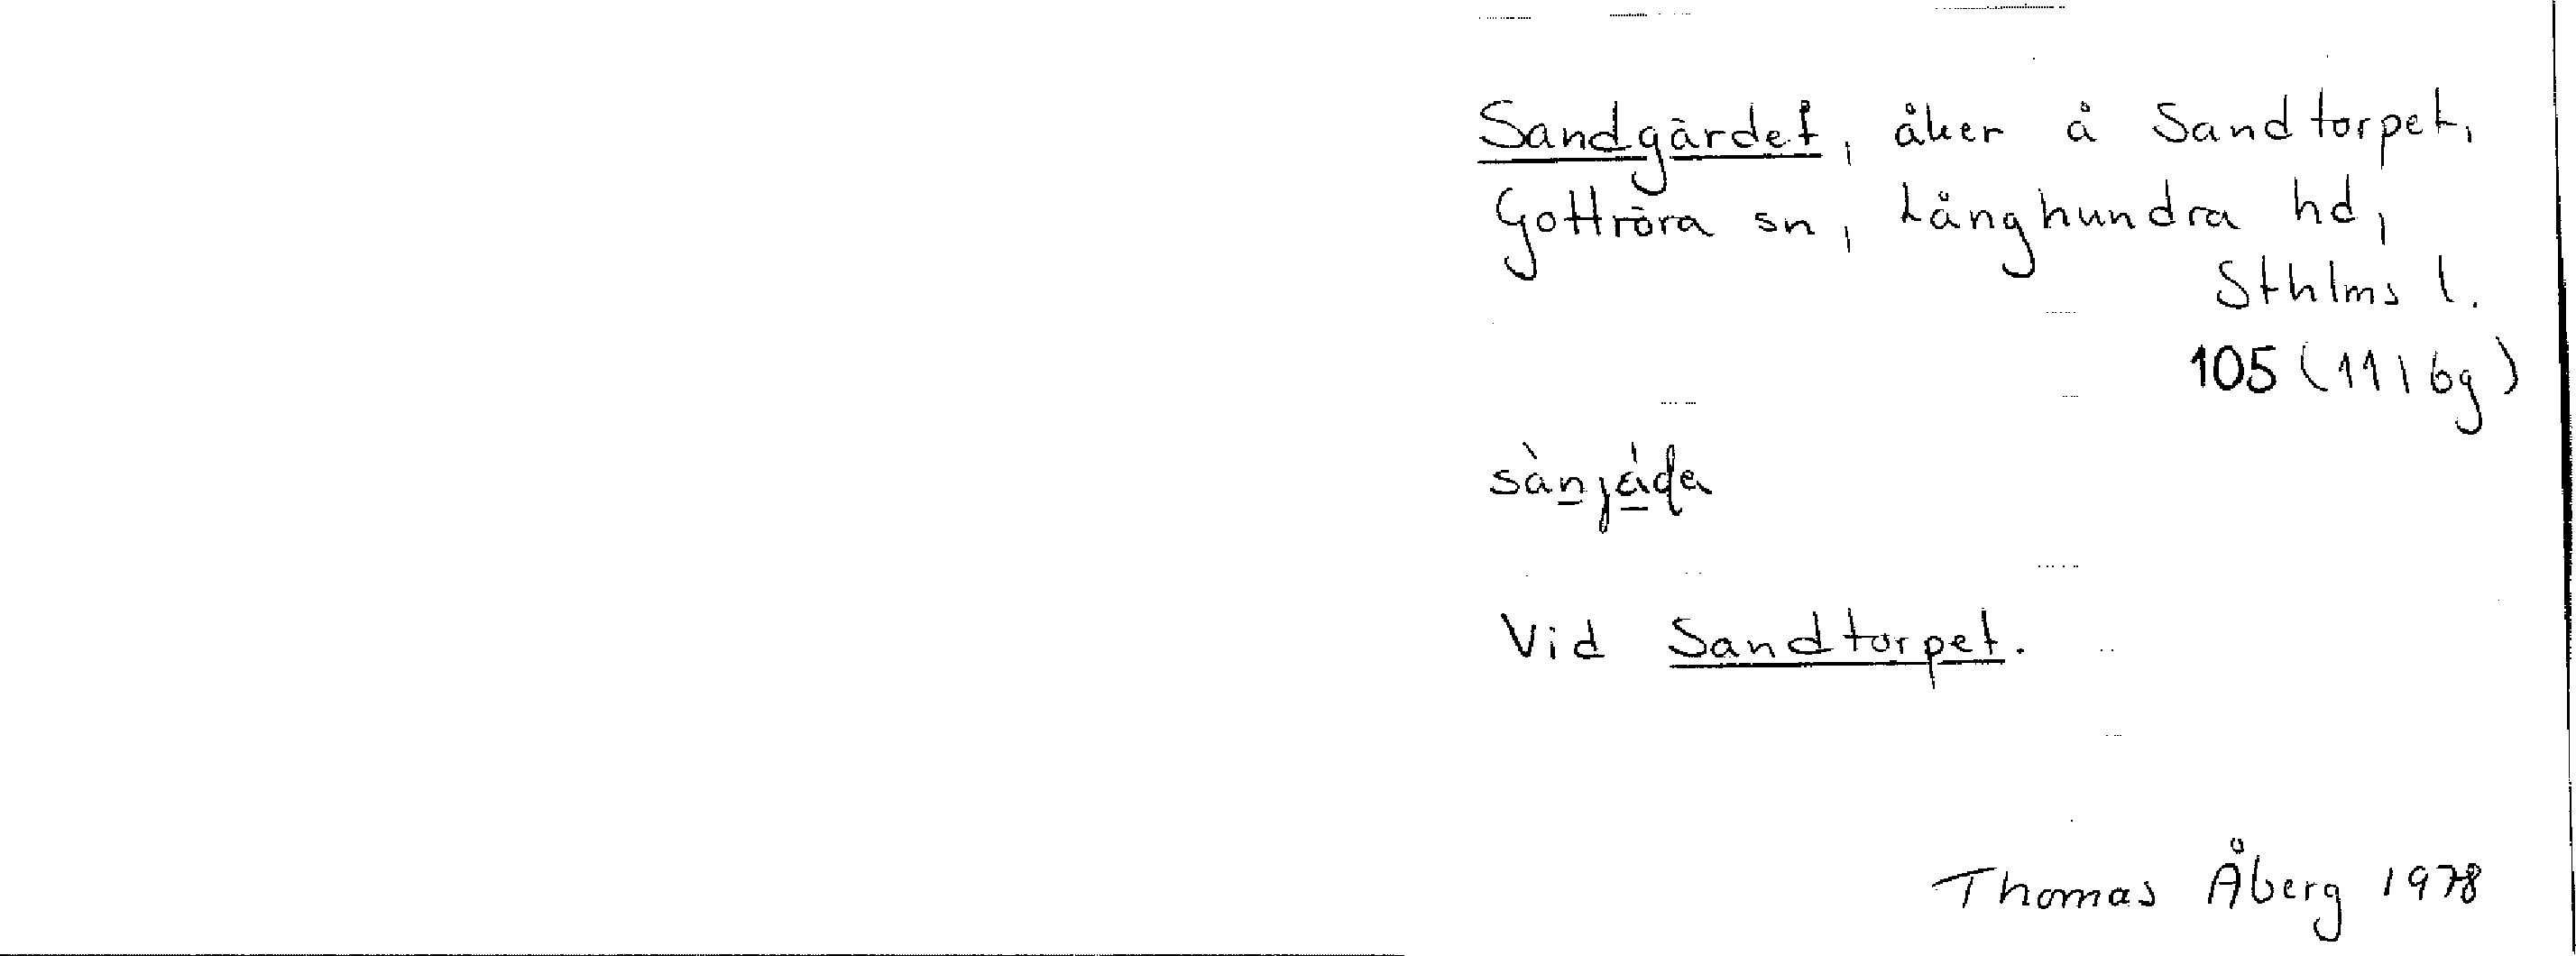 Sandgärdet, åker å Sandtorpet,
Gottröra sn, Långhundra hd,
Sthlms l.
105 (11 I 6g)
Vid Sandtorpet.
Thomas Åberg 1978